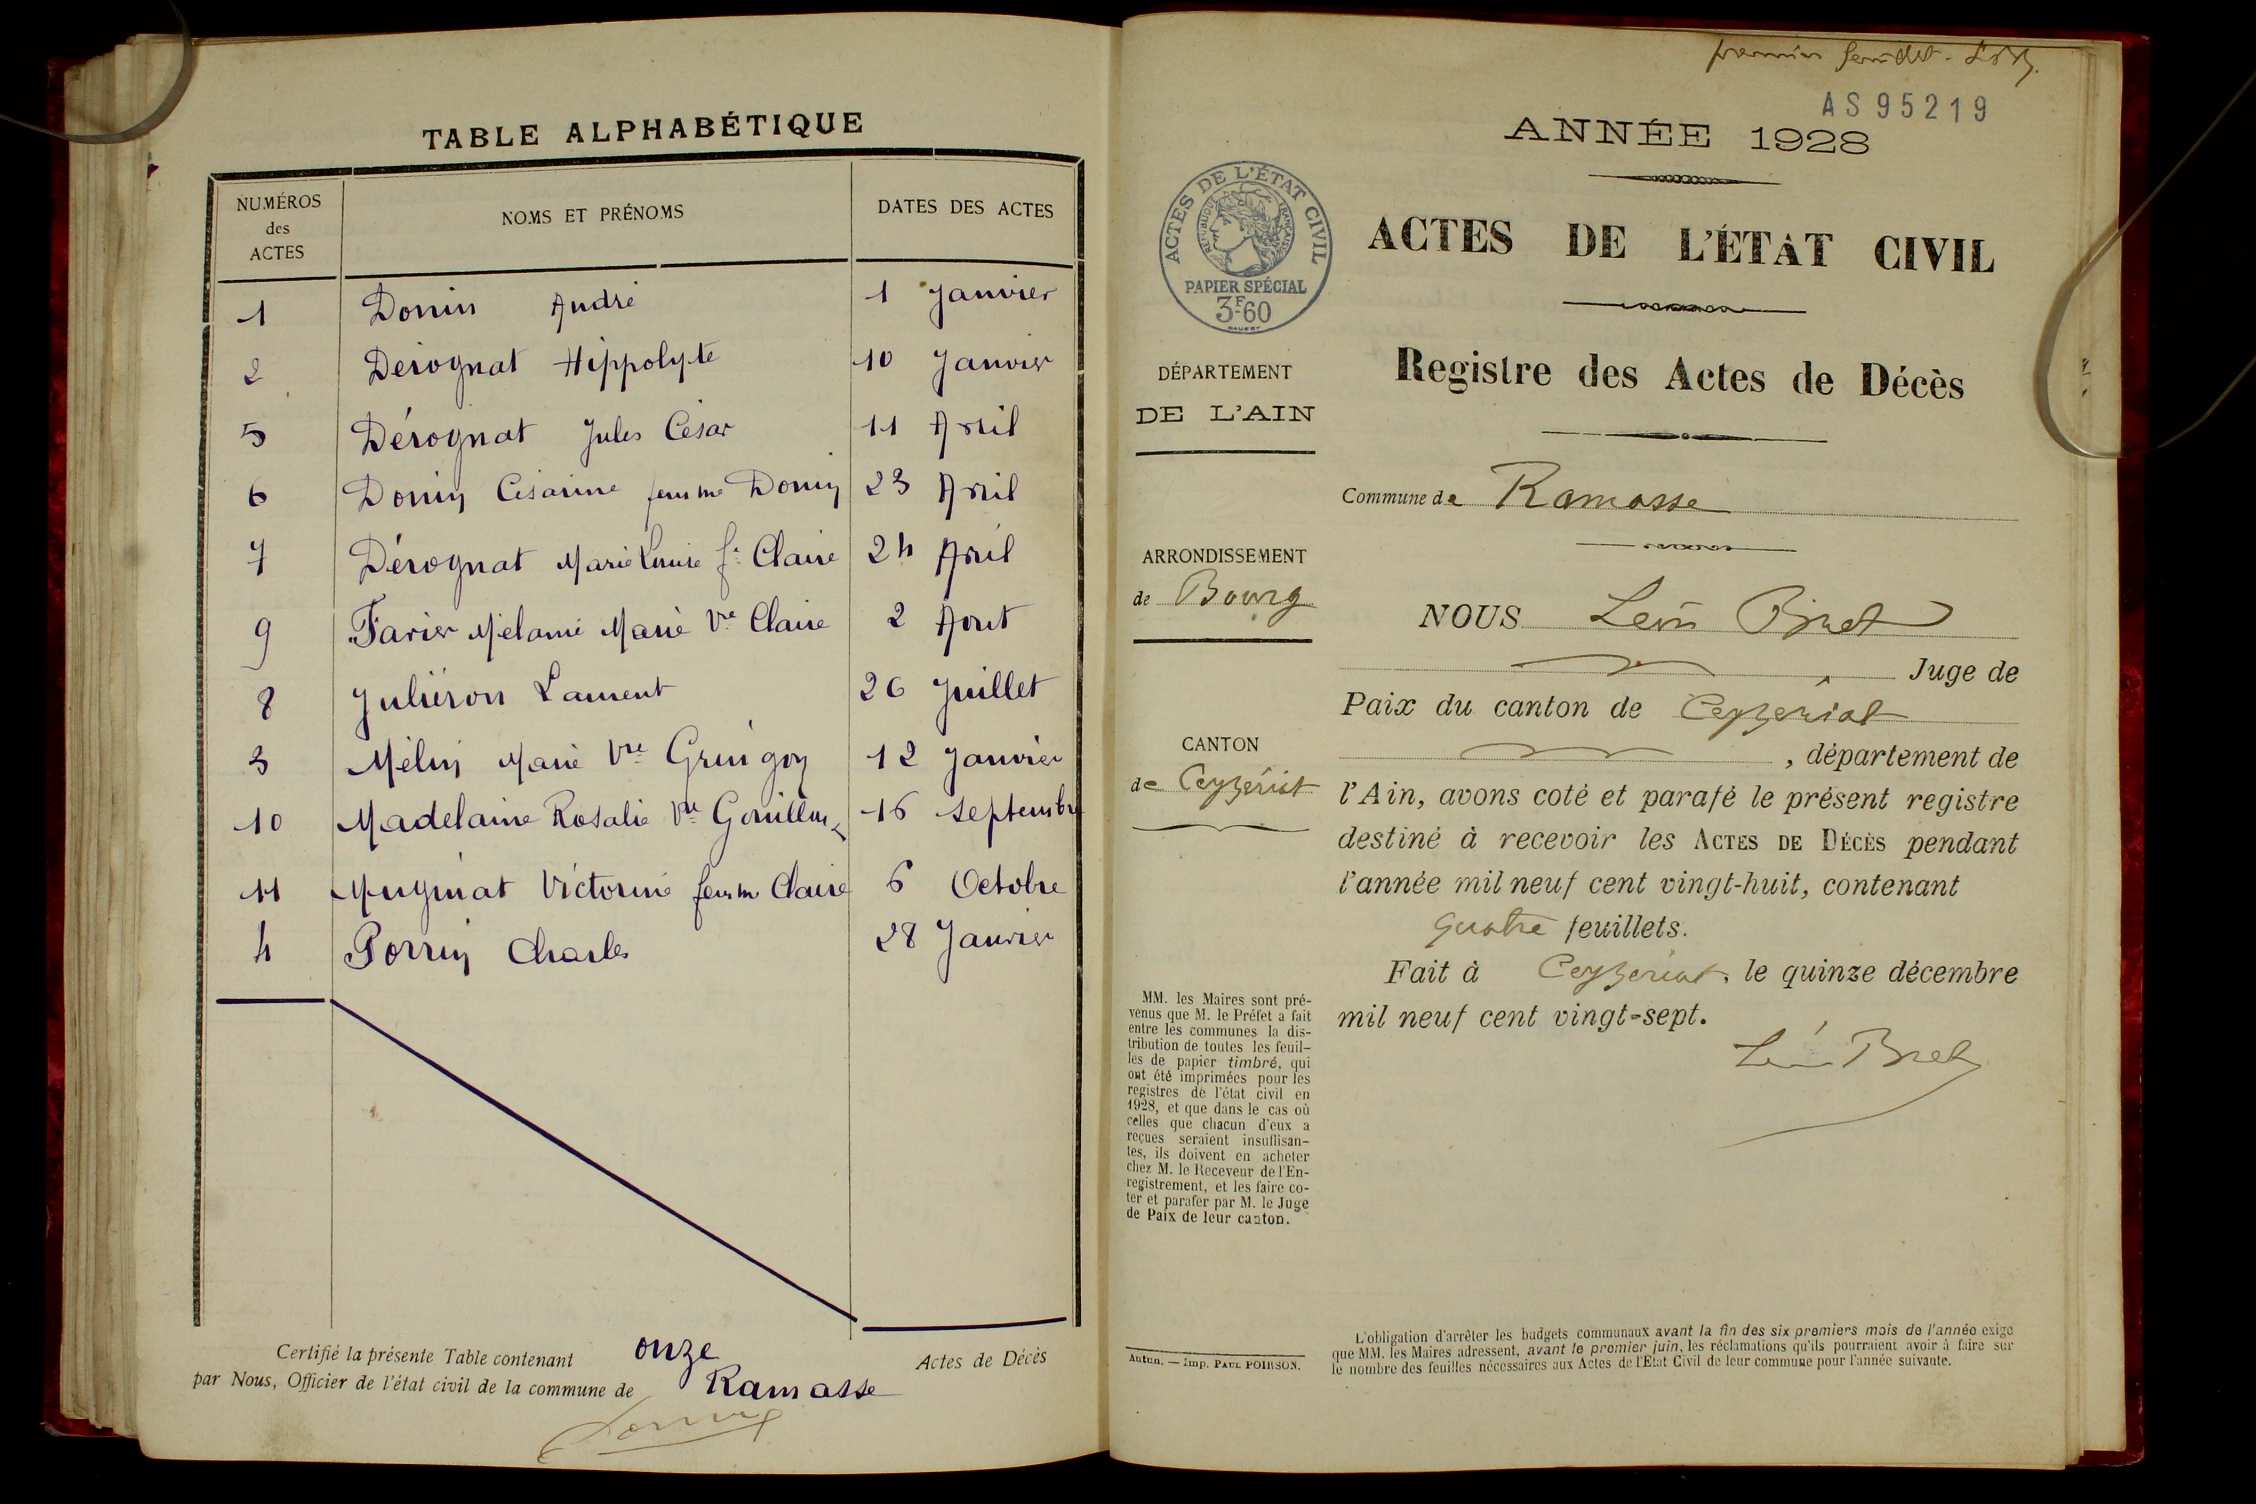 TABLE ALPHABÉTIQUE
NUMÉROS des ACTES
NOMS ET PRÉNOMS
DATES DES ACTES
1 Donin André 1 Janvier
2 Dérognat Hippolyte 10 Janvier
5 Dérognat Jules César 11 Avril
6 Donin Césarine femme Donin 23 Avril
7 Dérognat Marie Louise fe Claire 24 Avril
9 Favier Mélanie Marie Vve Claire 2 Aout
8 Juliéron Laurent 26 Juillet
3 Mélin Marie Vve 12 Janvier
10 Madelaine Rosalie Vve 16 septembre
11 Victorine femme Claire 6 Octobre
4 Perrin Charles 28 Janvier
Certifié la présente Table contenant onze Actes de Décès
par Nous, Officier de l'état civil de la commune de Ramasse
premier feuillet. L.B.
AS95219
ANNÉE 1928
ACTES DE L'ÉTAT CIVIL
RÉPUBLIQUE FRANÇAISE
PAPIER SPÉCIAL
3F60
ACTES DE L'ÉTAT CIVIL
Registre des Actes de Décès
DÉPARTEMENT
DE L'AIN
Commune de Ramasse
ARRONDISSEMENT
de Bourg
NOUS Léon Bret
Juge de
Paix du canton de Ceyzériat
, département de
CANTON
de Ceyzériat
l'Ain, avons coté et parafé le présent registre
destiné à recevoir les ACTES DE DÉCÈS pendant
l'année mil neuf cent vingt-huit, contenant
quatre feuillets.
Fait à Ceyzériat, le quinze décembre
mil neuf cent vingt-sept.
Léon Bret
MM. les Maires sont pré-
venus que M. le Préfet a fait
entre les communes la dis-
tribution de toutes les feuil-
les de papier timbré, qui
ont été imprimées pour les
registres de l'état civil en
1928, et que dans le cas où
celles que chacun d'eux a
reçues seraient insuffisan-
tes, ils doivent en acheter
chez M. le Receveur de l'En-
registrement, et les faire co-
ter et parafer par M. le Juge
de Paix de leur canton.
Autun. — Imp. PAUL POIRSON.
L'obligation d'arrêter les budgets communaux avant la fin des six premiers mois de l'année exige
que MM. les Maires adressent, avant le premier juin, les réclamations qu'ils pourraient avoir à faire sur
le nombre des feuilles nécessaires aux Actes de l'Etat Civil de leur commune pour l'année suivante.